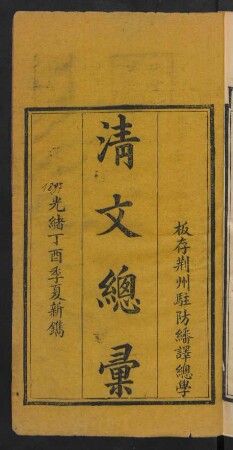 板存荆州駐防繙譯總學
清文總彙
光緒丁酉季夏新鐫
1897